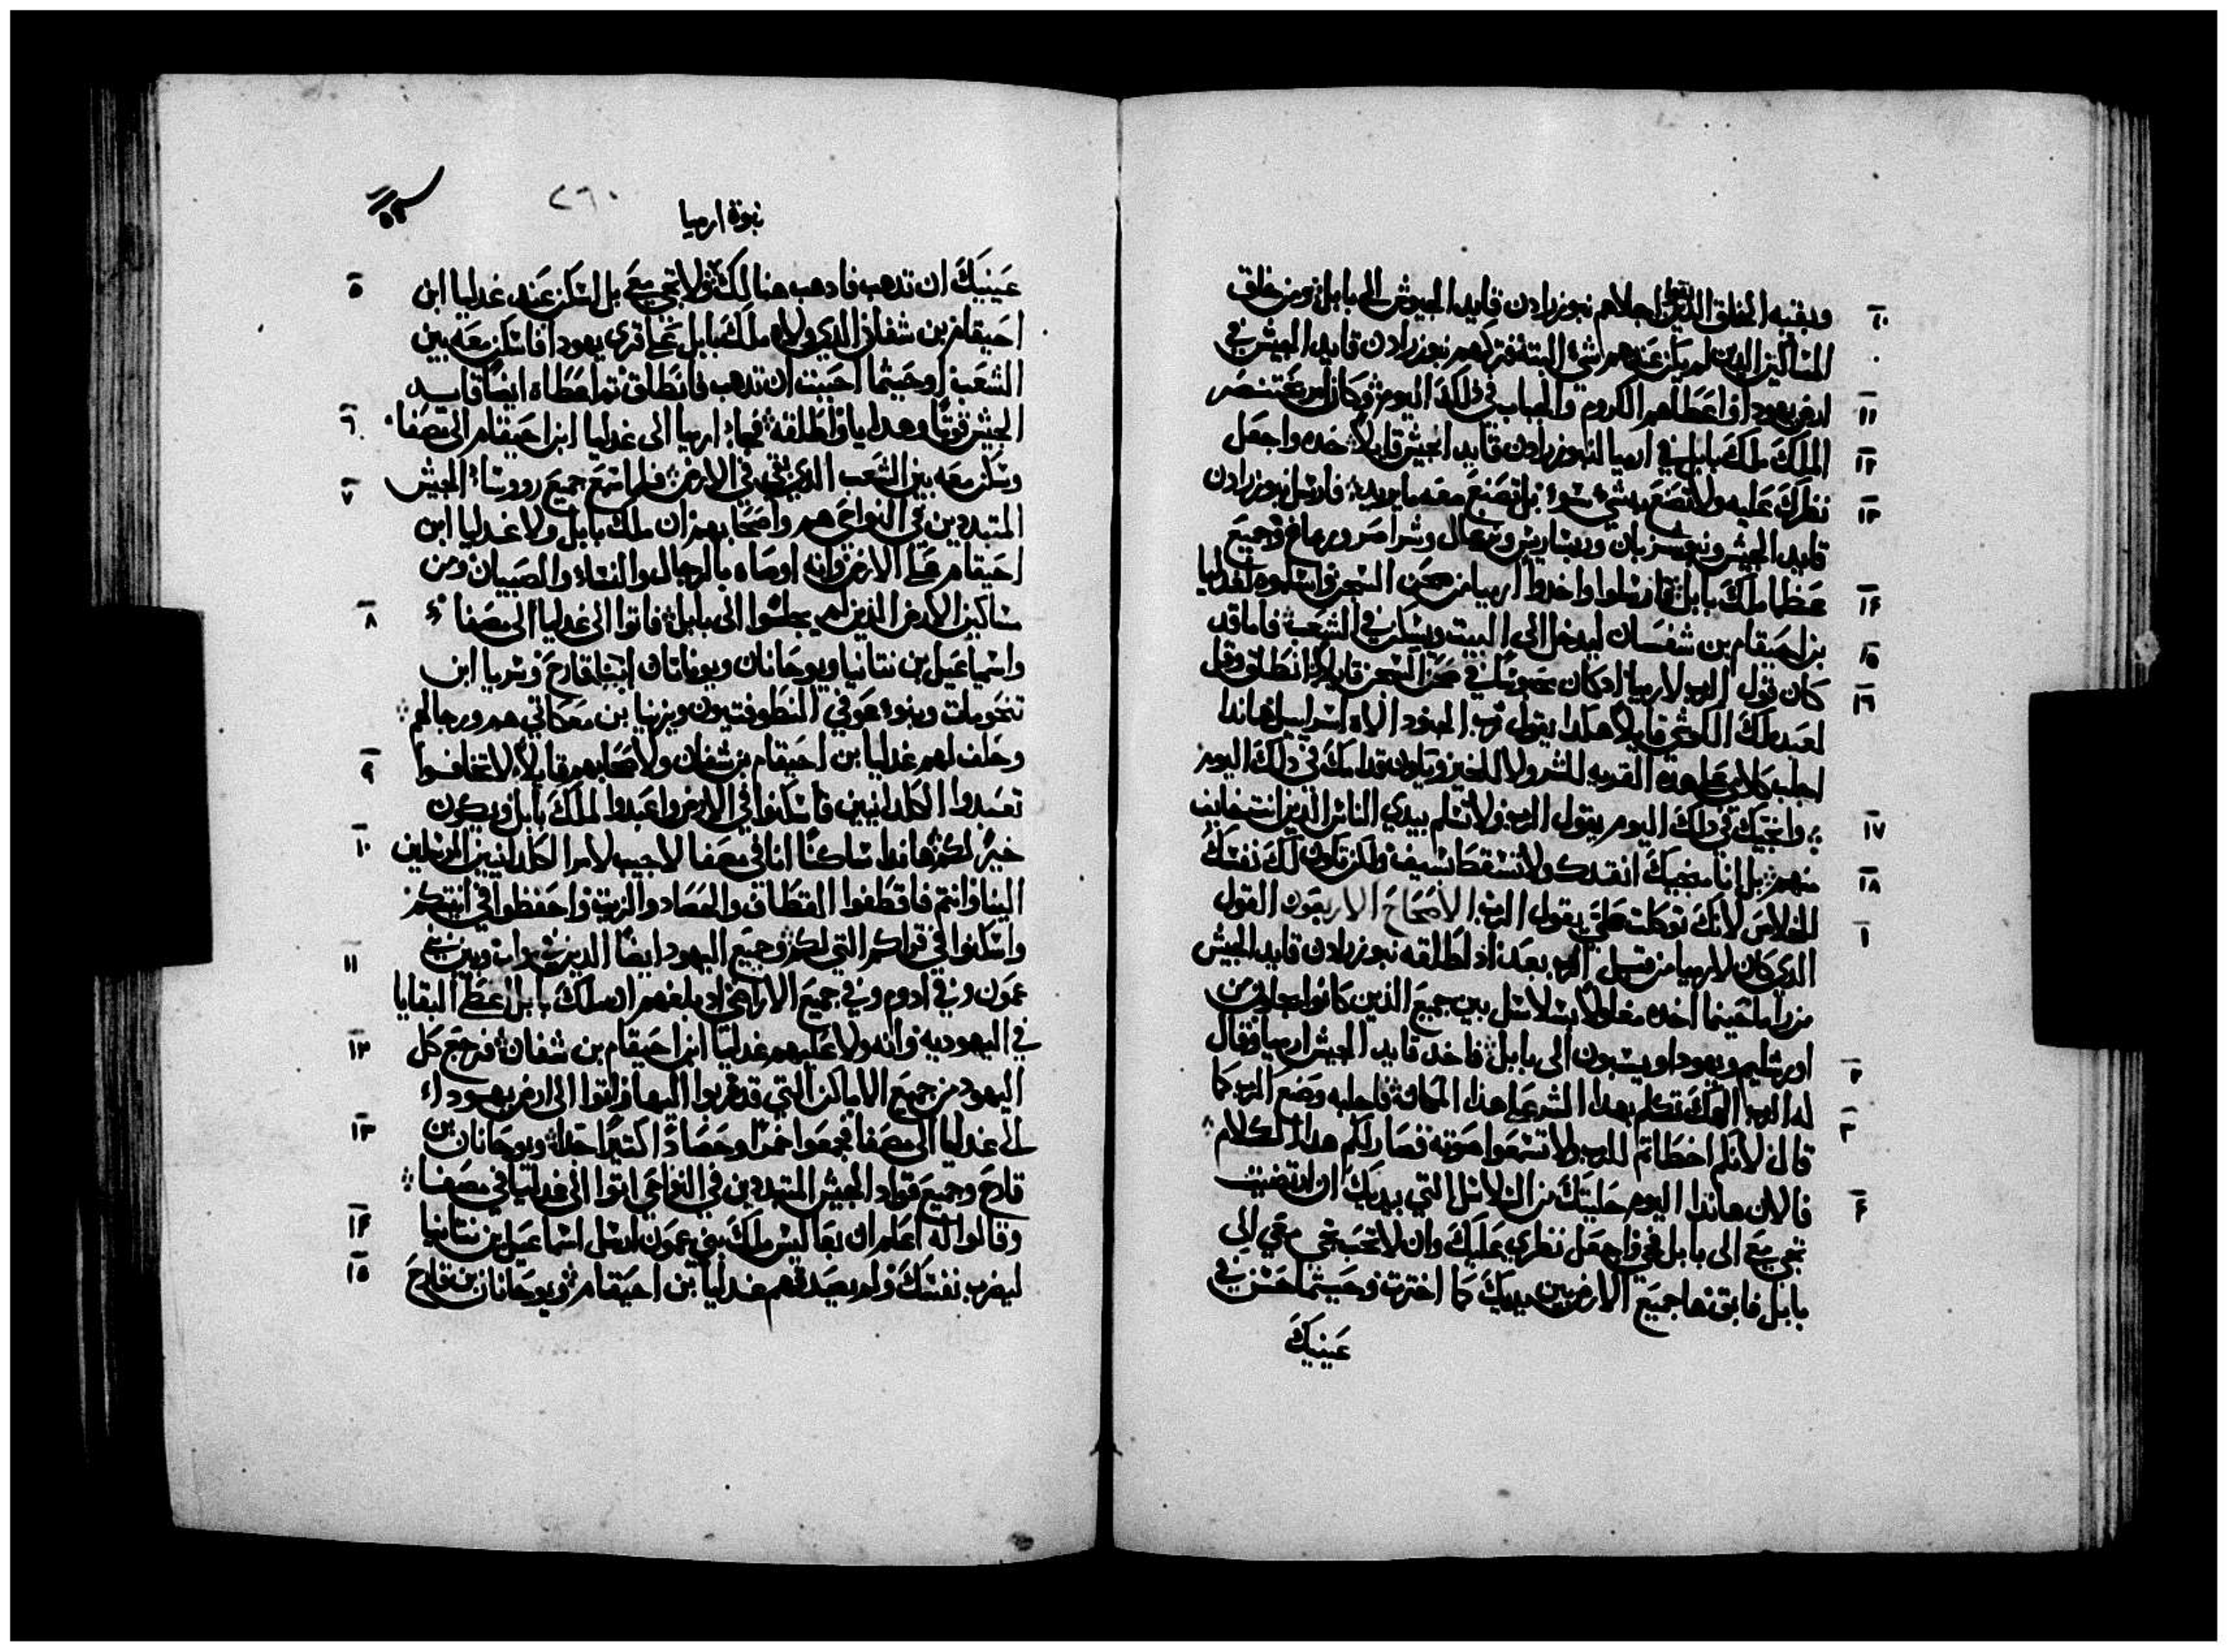 وبقيه الخلق الذين بقوا اجلاهم نبوزرادن قايد الجيوش الى بابل ومن خلق
١٠ المساكين الذين لم يكن عندهم شي البتة فتركهم نبوزرادن قايد الجيش في
ارض يهودا واعطاهم الكروم والجباب في ذلك اليوم وكان امر بختنصر ١١
الملك ملك بابل في ارميا لنبوزرادن قايد الجيش قايلا خده واجعل ١٢
نظرك عليه ولا تصنع به شي سوء بل تصنع معه ما يريد فارسل نبوزرادن ١٣
قايد الجيش ونبوسزبان وربساريس ونرغال وشراصر وربماغ وجميع
عظما ملك بابل فارسلوا واخدوا ارميا من صحن السجن واسلموه لغدليا ١٤
بن احيقام بن شفسان ليدخل الى البيت ويسكن في الشعب فاما قد ١٥
كان قول الرب لارميا اذ كان محبوسا في صحن السجن قايلا انطلق وقل ١٦
لعبدملك الكوشي قايلا هكدا يقول رب الجنود الاه اسراييل هاندا
اجلب كلامي على هده القريه للشر ولا للخير ويكون قدامك في دلك اليوم
وانجيك في دلك اليوم يقول الرب ولا تسلم بيدي الناس الذين انت خايف ١٧
منهم بل انا منجيك انقدك ولا تسقط بسيف ولكن تكون لك نفسك ١٨
للخلاص لانك توكلت علي يقول الرب الاصحاح الاربعون القول ١
الدي كان لارميا من قبل الرب بعد اذ اطلقه نبوزرادن قايد الجيش
من راما حينما اخده مغلولا بسلاسل بين جميع الذين كانوا يجلون من
اورشليم ويهودا ويسبون الى بابل فاخد قايد الجيش ارميا وقال ٢
له الرب الهك تكلم بهدا الشر على هدا المكان فاجلبه وصنع الرب كما ٣
قال لانكم اخطاتم للرب ولا تسمعوا صوته فصار لكم هدا الكلام
فالان هاندا اليوم حليتك من السلاسل التي بيديك ان ارتضيت ٤
تجي مع الى بابل فجي واجعل نظري عليك وان لا تحب تجي معي الى
بابل فابق ها جميع الارض بين يديك كما اخترت وحيتما حسن في
عينيك
٢٦٠
نبوة ارميا
عينيك ان تدهب فادهب هنالك ولا تجي مع بل اسكن عند غدليا ابن ٥
احيقام بن شفان الدي ولاه ملك بابل على قرى يهودا فاسكن معه بين
الشعب او حيثما احببت ان تدهب فانطلق ثم اعطاه ايضا قايد
الجيش قوتا وهدايا واطلقه فجاء ارميا الى غدليا ابن احيقام الى مصفا ٦
وسكن معه بين الشعب الدي بقي في الارض فلما سمع جميع رووساء الجيش ٧
المتبددين في النواحي هم واصحابهم ان ملك بابل ولا غدليا ابن
احيقام على الارض وانه اوصاه بالرجال والنساء والصبيان ومن
ساكين الارض الذين لم يجلسوا الى بابل فاتوا الى غدليا الى مصفا ٨
واسماعيل بن نتانيا ويوحانان ويوناتان ابنا قارح وسريا ابن
تنحومات وبنوء عوفي النطوفتيون ويزنيا بن معكاتي هم ورجالهم
وحلف لهم غدليا بن احيقام بن شفان ولاصحابهم قايلا لا تخافوا ٩
تعبدوا الكلدانيين فاسكنوا في الارض واعبدوا لملك بابل ويكون
خير لكم هاندا ساكنا انا في مصفا لاجيب لامر الكلدانيين المرسلين ١٠
الينا وانتم فاقطفوا القطاف والحصاد والزيت واحفظوا في انيتكم
واسكنوا في قراكم التي لكم وجميع اليهود ايضا الدين في مواب وبين بني ١١
عمون وفي ادوم وفي جميع الاراضي اذ بلغهم ان ملك بابل اعطى البقايا
في اليهوديه وانه ولا عليهم غدليا ابن احيقام بن شفان فرجع كل ١٢
اليهود من جميع الاماكن التي قد هربوا اليها واتوا الى ارض يهوداء
الى غدليا الى مصفا فجمعوا خمرا وحصادا كثيرا جدا ويوحانان بن ١٣
قارح وجميع قواد الجيش المتبددين في النواحي اتوا الى غدليا في مصفا
وقالوا له اعلم ان بعاليس ملك بني عمون ارسل اسماعيل بن نتانيا ١٤
ليضرب نفسك ولم يصدقهم غدليا بن احيقام ويوحانان بن قارح ١٥